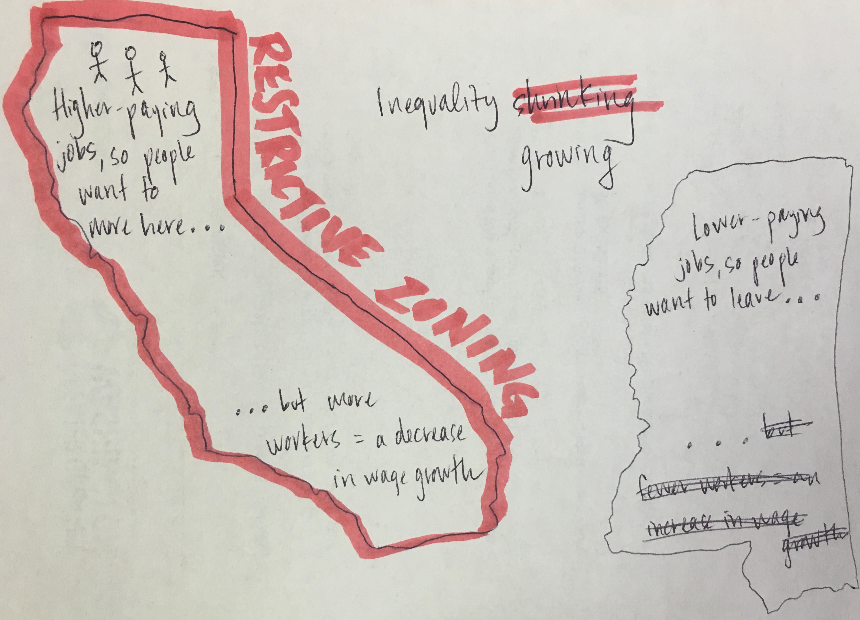 Higher-paying
jobs, so people
want to
move here...
...but more
workers = a decrease
in wage growth
RESTRICTIVE ZONING
Inequality shrinking
growing
Lower-paying
jobs, so people
want to leave...
...but
fewer workers = an
increase in wage
growth